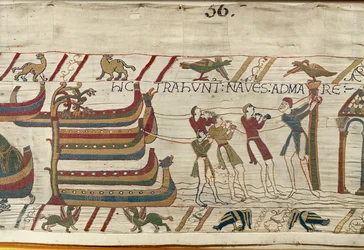 36.
hIC TRAhUNT: NAVES: ADMARE: